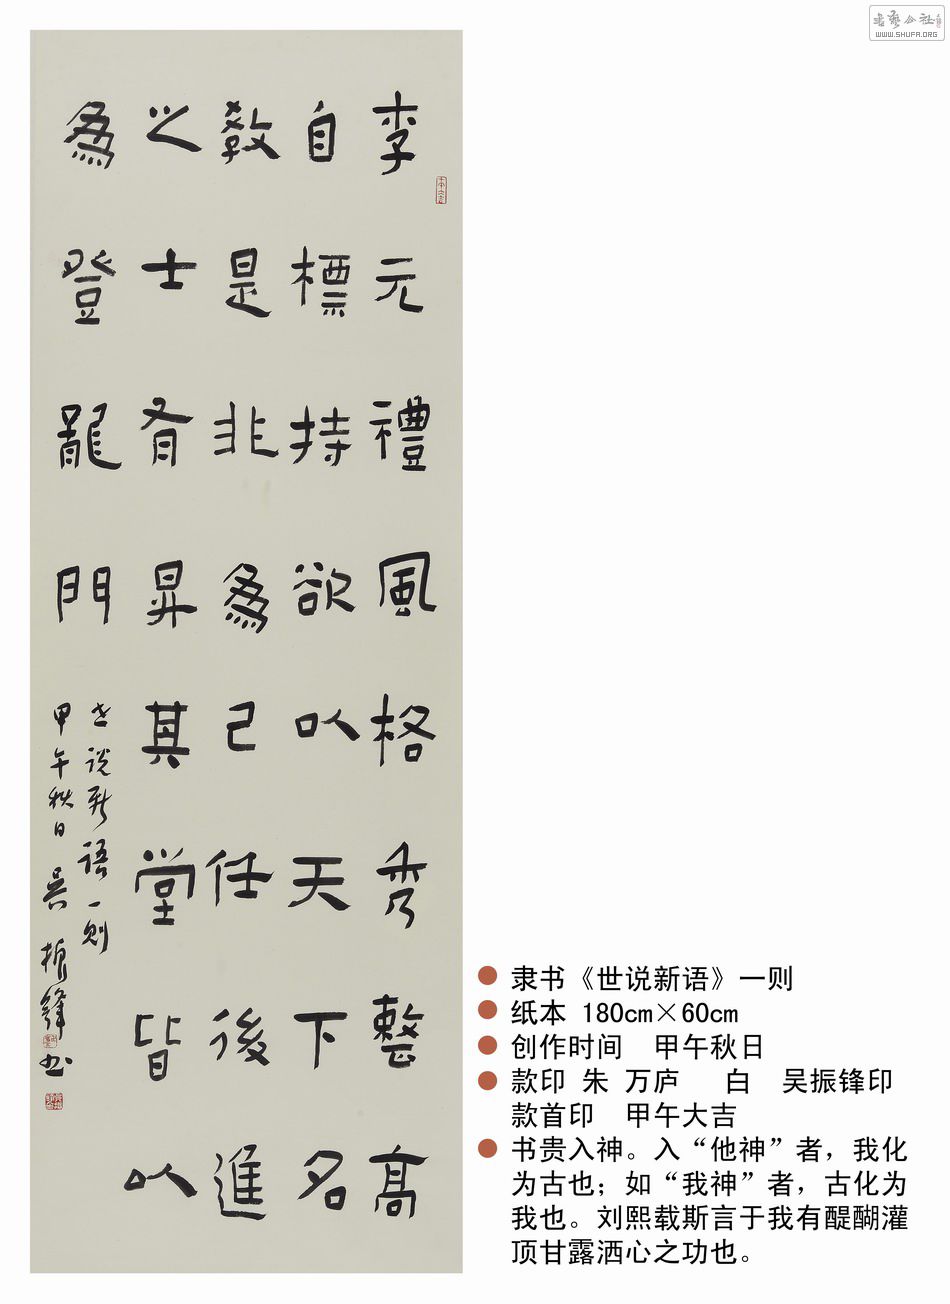 書藝公社
WWW.SHUFA.ORG
李元禮風格秀整高
自標持欲以天下名
教是非為己任後進
之士有昇其堂皆以
為登龍門
世说新语一则
甲午秋日吴振鋒书
隶书《世说新语》一则
纸本 180cm×60cm
创作时间 甲午秋日
款印 朱 万庐 白 吴振锋印
款首印 甲午大吉
书贵入神。入“他神”者，我化
为古也；如“我神”者，古化为
我也。刘熙载斯言于我有醍醐灌
顶甘露洒心之功也。